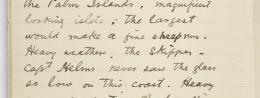 the Palm Islands, magnificent
looking islets; the largest
would make a fine sheep run.
Heavy weather. the Skipper -
Capt Helms never saw the glass
so low on this coast. Heavy